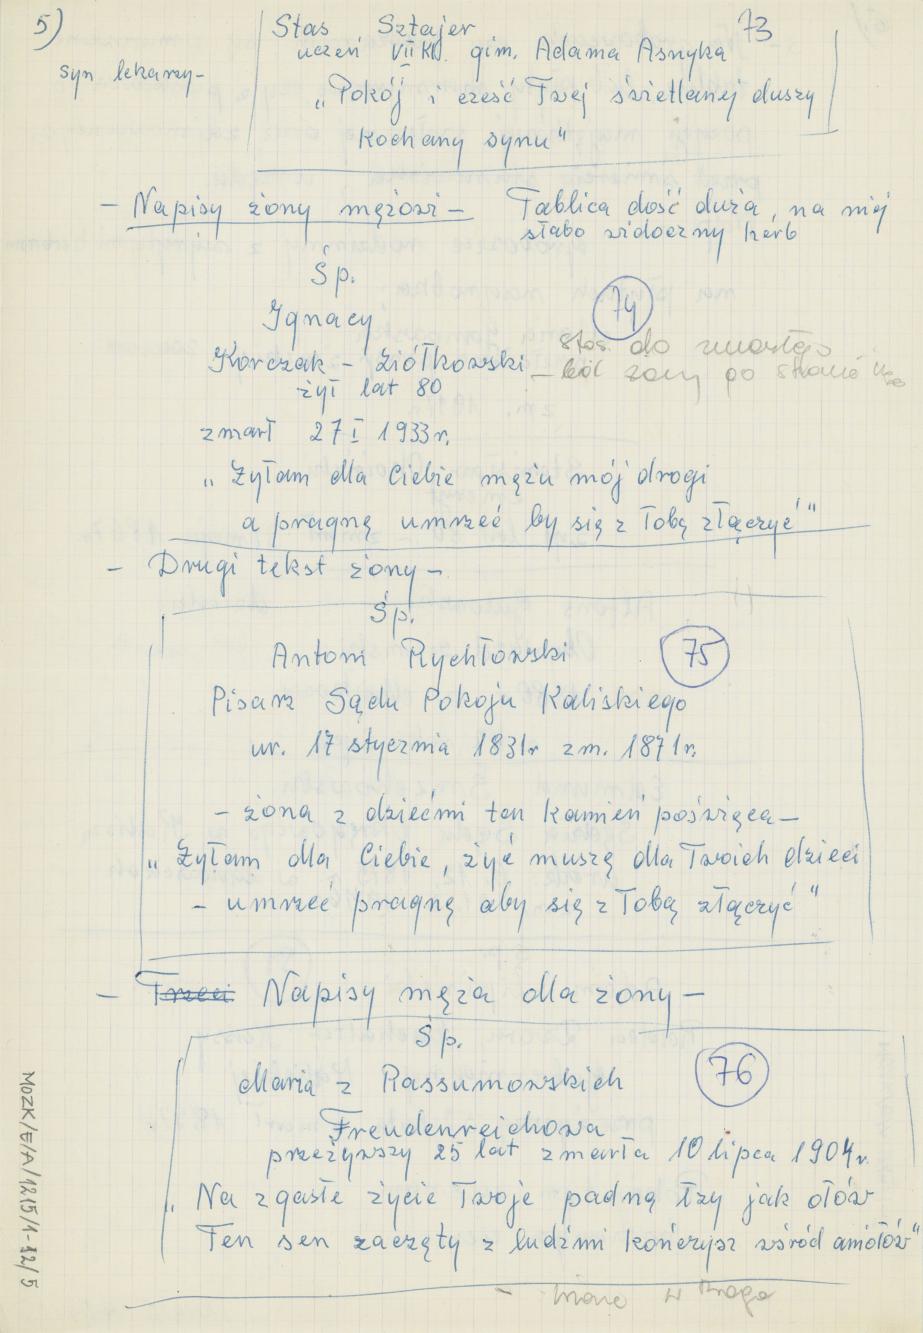 5)
73
Stas Sztajer
uczeń VII kl. gim. Adama Asnyka
syn lekarzy-
„Pokój i cześć Twej świetlanej duszy
kochany synu"
- Napisy żony mężowi - Tablica dość duża, na niej
słabo widoczny herb
Śp.
74
Ignacy
Korczak - Ziółkowski
stos. do zmarłego
- ból żony po stracie
żył lat 80
zmarł 27 I 1933r.
„Żyłam dla Ciebie mężu mój drogi
a pragnę umrzeć by się z Tobą złączyć"
- Drugi tekst żony -
Śp.
Antoni Rychłowski
75
Pisarz Sądu Pokoju Kaliskiego
ur. 17 stycznia 1831r zm. 1871r.
- żona z dziećmi ten kamień poświęca -
„Żyłam dla Ciebie, żyć muszę dla Twoich dzieci
- umrzeć pragnę aby się z Tobą złączyć"
- Trzeci Napisy męża dla żony -
Śp.
76
Maria z Rassumowskich
Freudenreichowa
przeżywszy 25 lat zmarła 10 lipca 1904r.
„Na zgasłe życie Twoje padną łzy jak ołów
Ten sen zaczęty z ludźmi kończysz wśród aniołów"
MOZK/E/A/1215/1-42/5